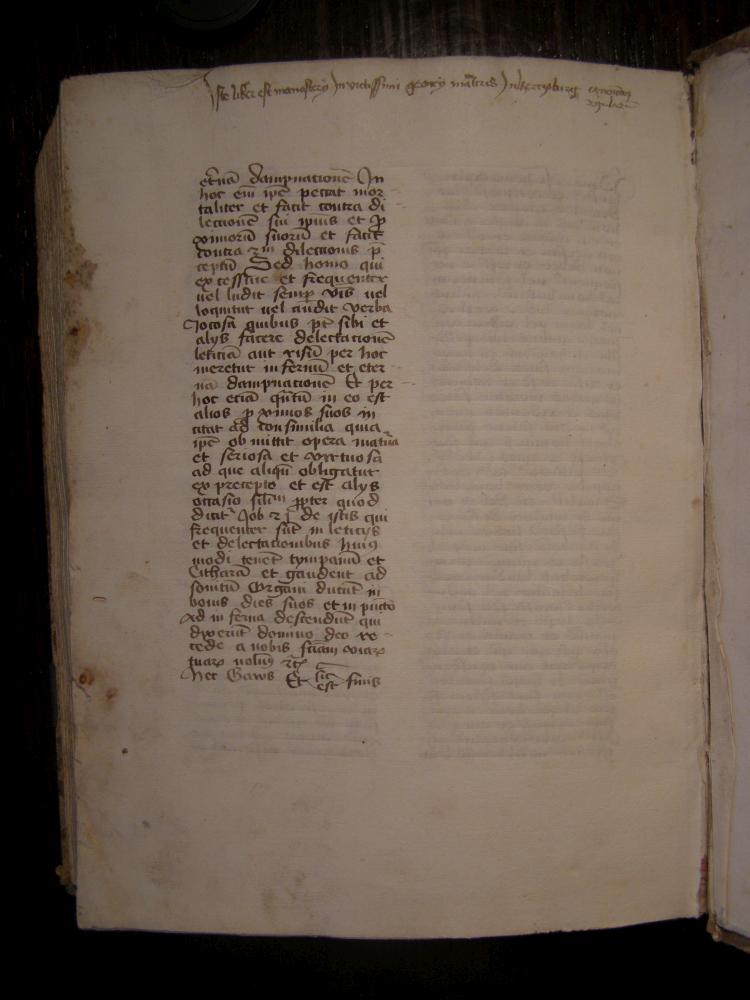 Iste liber est monasterÿ Invictissimi georÿ mar̃tiris In herczoburg canonicoꝝ
regulariũ
et͂nã dampnacionẽ In
hoc em̃ ip̃e peccat mor
taliter et facit contra di
lectionẽ sui ipius et ꝓ
ximorũ suorũ et facit
contra 2m dilectionis p̃
ceptũ Sed homo qui
excessiue et frequenter
uel ludit semp̲ vĩs uel
loquitur uel audit verba
Jocosa quibus pt̃ sibi et
alÿs facere delectacionẽ
leticiã aut risũ per hoc
meretur infernũ et eter
nã dampnacionẽ Et per
hoc eciã qñtũ in eo est
alios ꝓximos suos in
citat ad consimilia quia
ip̃e obmittit opera matura
et seriosa et virtuosa
ad que aliqñ obligatur
ex precepto et est alÿs
occasio silim̃ ꝓpter quod
dicit̃ Job 21 de istis qui
frequenter sũt in leticÿs
et delectacionibus huiꝰ
modi tenẽt tympanũ et
Citharã et gaudent ad
sonitũ Organi ducũt in
bonis dies suos et in pũcto
ad inferna descendũt qui
dixerũt domino deo re
cede a nobis sciam viaꝝ
tuaꝝ nolumꝰ ⁊c̃
Hec Et sic est finis